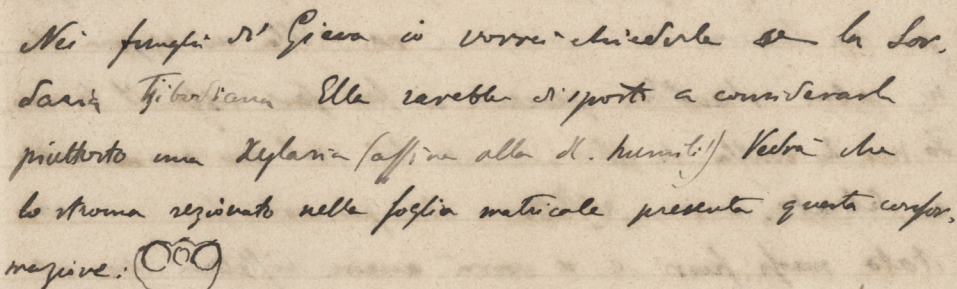 Nei funghi di Giava io vorrei chiederle se la Sor-
daria Tjibodiana Ella sarebbe disposto a considerarla
piuttosto una Xylaria (affine alla X. humilis) Vedrà che
lo stroma sezionato nella foglia matricale presenta questa confor-
mazione: